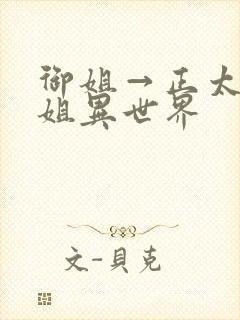 御姐→正太
姐異世界
文-貝克